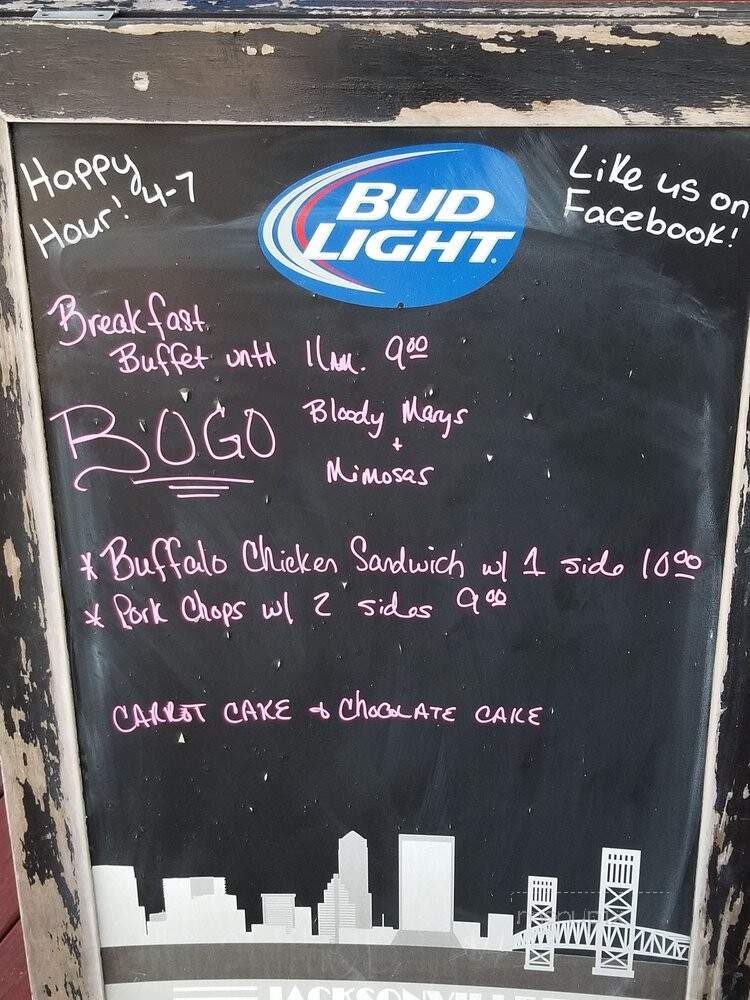 Happy
Hour! 4-7
BUD
LIGHT
Like us on
Facebook!
Breakfast
Buffet until 11am. 9.00
BOGO
Bloody Marys
+
Mimosas
* Buffalo Chicken Sandwich w/ 1 side 10.00
* Pork Chops w/ 2 sides 9.00
CARROT CAKE & CHOCOLATE CAKE
JACKSONVILLE